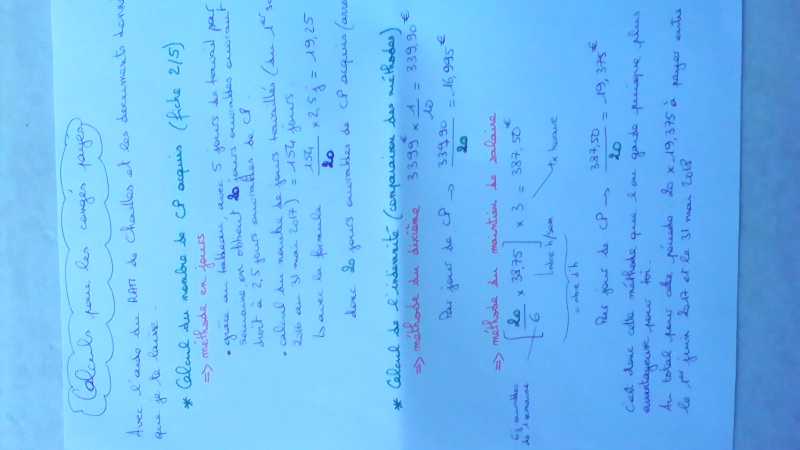 Calculs pour les congés payés
Avec l'aide du RAM de Chailles et les documents
que je te laisse.
* Calcul du nombre de CP acquis (fiche 2/5)
=> méthode en jours
• grâce au tableau avec 5 jours de travail par
semaine on obtient 20 jours ouvrables ouvrant
droit à 2,5 jours ouvrables de CP.
• calcul du nombre de jours travaillés (du 1er
2016 au 31 mai 2017) = 154 jours
avec la formule 154/20 x 2,5j = 19,25
donc 20 jours ouvrables de CP acquis
* Calcul de l'indemnité (comparaison des méthodes)
=> méthode du dixième 3399€ x 1/10 = 339,90€
Par jour de CP → 339,90/20 = 16,995€
=> méthode du maintien de salaire
[20/6 x 38,75] x 3 = 387,50€
6j ouvrables
de 1 semaine
nbre h/sem
tx horaire
= nbre d'h
Par jour de CP → 387,50/20 = 19,375€
C'est donc cette méthode que l'on garde puisque plus
avantageuse pour toi.
Au total pour cette période 20 x 19,375 à payer entre
le 1er juin 2017 et le 31 mai 2018